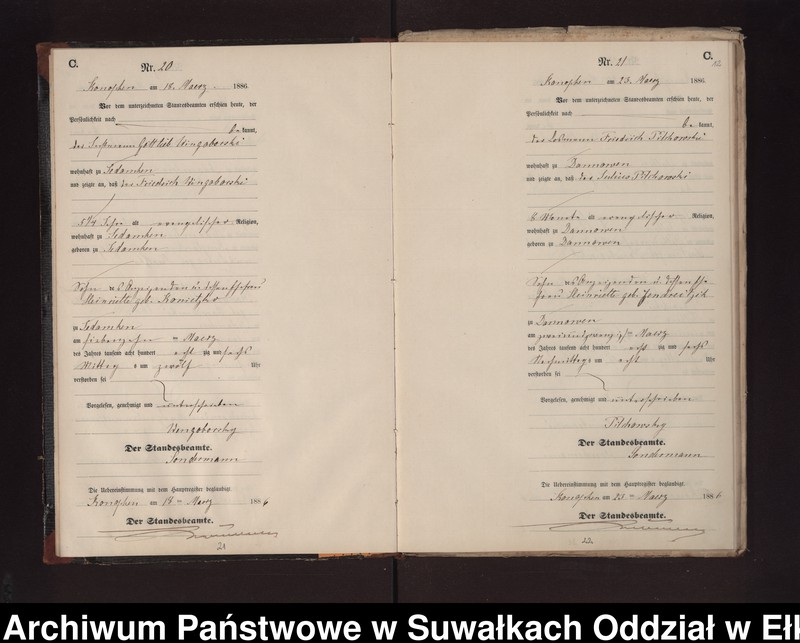 C.
Nr. 20
am 18. Maerz 1886.
Vor dem unterzeichneten Standesbeamten erschien heute, der
Persönlichkeit nach
be kannt,
Gottlieb
wohnhaft zu Sedamken
und zeigte an, daß der Friedrich
5 1/4 Jahr alt evangelischer Religion,
wohnhaft zu Sedamken
geboren zu Sedamken
Sohn des Anzeigenden u. dessen Ehefrau
Heinriette geb.
zu Sedamken
am siebzehn ten Maerz
des Jahres tausend acht hundert acht zig und sechs
Mittag s um zwölf Uhr
verstorben sei
Vorgelesen, genehmigt und unterschrieben
Der Standesbeamte.
Sondermann
Die Uebereinstimmung mit dem Hauptregister beglaubigt.
am 18 ten Maerz 1886
Der Standesbeamte.
21
C.
Nr. 21
am 23. Maerz 1886.
Vor dem unterzeichneten Standesbeamten erschien heute, der
Persönlichkeit nach
be kannt,
der Losmann Friedrich
wohnhaft zu Dannowen
und zeigte an, daß der Julius
6 Monate alt evangelischer Religion,
wohnhaft zu Dannowen
geboren zu Dannowen
Sohn des Anzeigenden u. dessen Ehe
frau Heinriette geb.
zu Dannowen
am zweiundzwanzigsten Maerz
des Jahres tausend acht hundert acht zig und sechs
Nachmittags um acht Uhr
verstorben sei
Vorgelesen, genehmigt und unterschrieben
Der Standesbeamte.
Sondermann
Die Uebereinstimmung mit dem Hauptregister beglaubigt.
am 23 ten Maerz 1886
Der Standesbeamte.
Archiwum Państwowe w Suwałkach Oddział w Eł